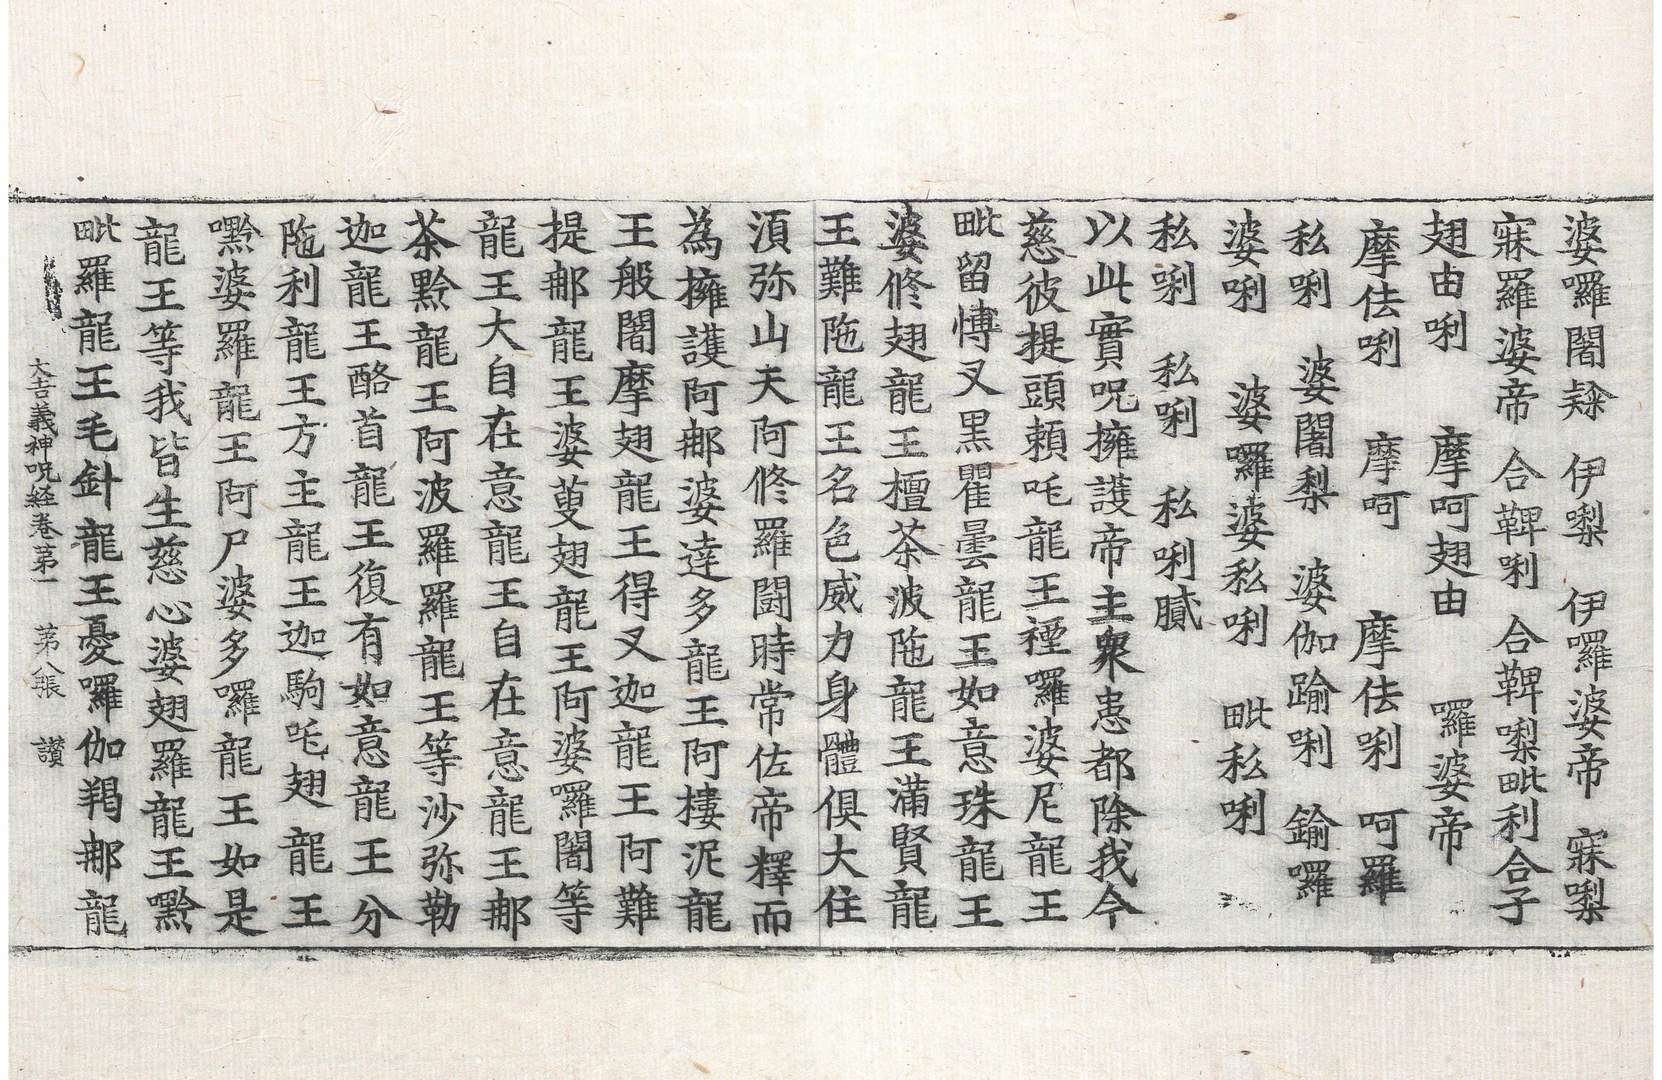 婆囉闍𨽻 伊㗚 伊囉婆帝 寐㗚
寐羅婆帝 合鞞唎 合鞞㗚毗利合子
翅由唎 摩呵翅由 囉婆帝
摩佉唎 摩呵 摩佉唎 呵羅
私唎 婆闍梨 婆伽踰唎 鍮囉
婆唎 婆囉婆私唎 毗私唎
私唎 私唎 私唎膩
以此實呪擁護帝主衆患都除我今
慈彼提頭頼吒龍王堙囉婆尼龍王
毗留愽叉黒瞿曇龍王如意珠龍王
婆修翅龍王檀茶波陁龍王滿賢龍
王難陁龍王名色威力身體俱大住
湏弥山夫阿修羅闘時常佐帝釋而
為擁護阿𨚗婆達多龍王阿樓泥龍
王般闍摩翅龍王得叉迦龍王阿難
提𨚗龍王婆蒐翅龍王阿婆囉闍等
龍王大自在意龍王自在意龍王𨚗
茶黔龍王阿波羅羅龍王等沙弥勒
迦龍王酪首龍王復有如意龍王分
陁利龍王方主龍王迦駒吒翅龍王
㘕婆羅龍王阿尸婆多囉龍王如是
龍王等我皆生慈心婆翅羅龍王㘕
毗羅龍王毛針龍王憂囉伽羯𨚗龍
大吉義神呪経卷第一 第八張 讃